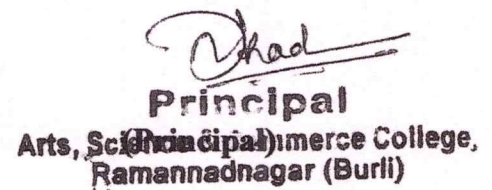 Principal
Arts, (Principal) merce College,
Ramannadnagar (Burli)